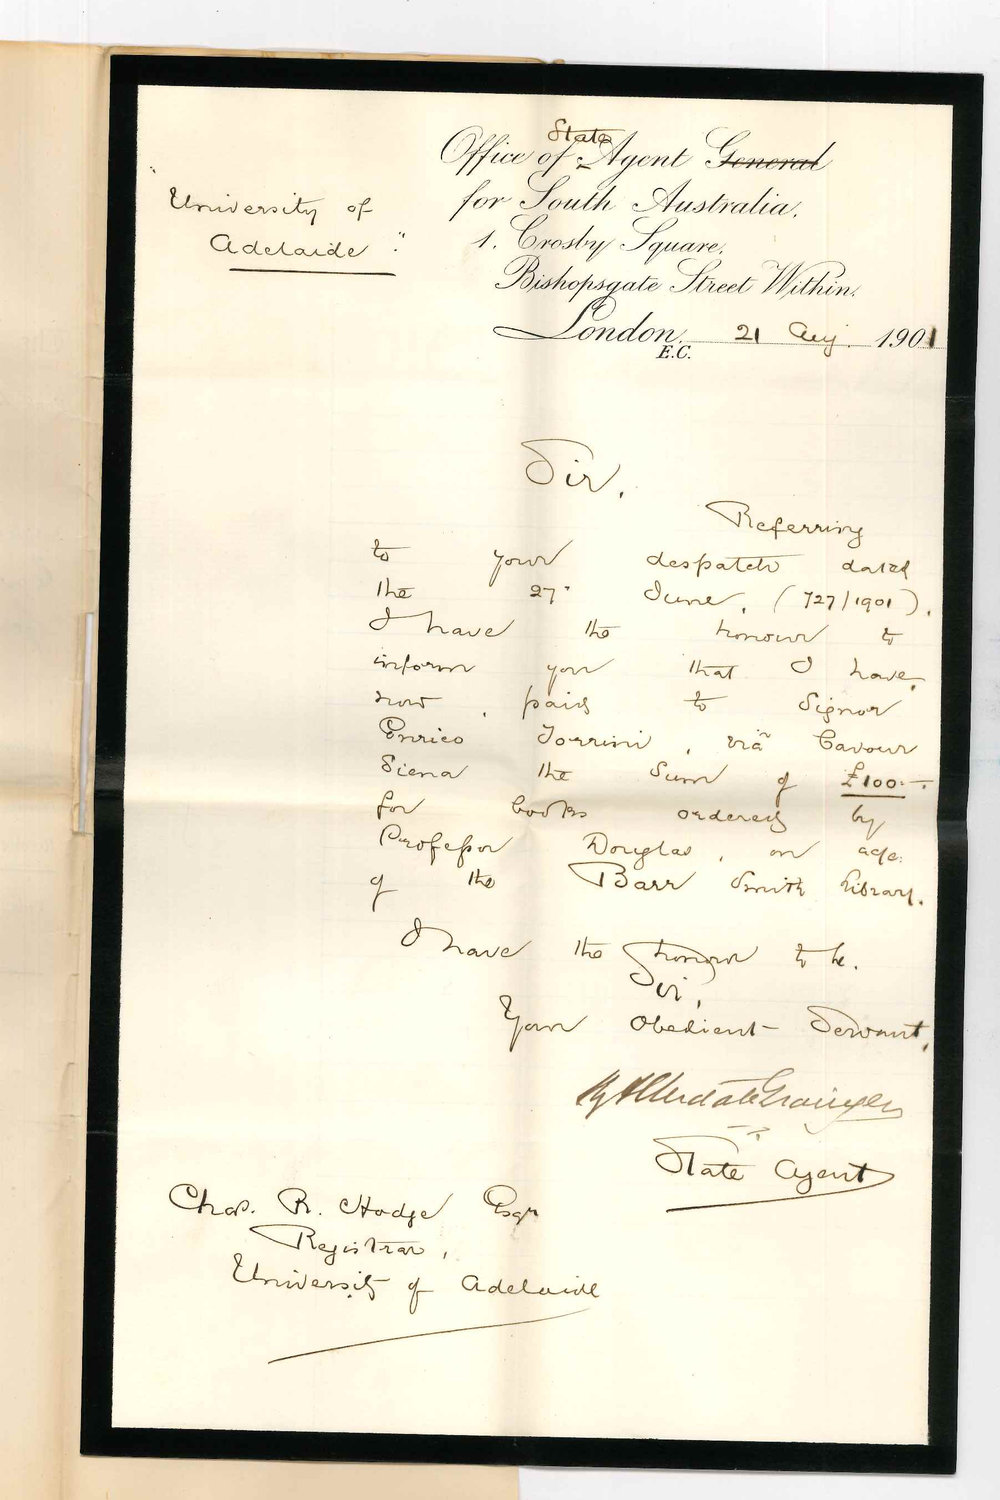 Office of State Agent General
for South Australia.
1. Crosby Square,
Bishopsgate Street Within.
London, 21 Aug. 1901
E.C.
"University of
Adelaide".
Sir,
Referring
to your despatch dated
the 27 June, (727/1901),
I have the honour to
inform you that I have,
now, paid to Signor
Enrico Torrini, via Cavour
Siena the sum of £100.-.
for books ordered by
Professor Douglas, on a/c.
of the Barr Smith Library.
I have the honour to be,
Sir,
Your Obedient Servant,
Allerdale Grainger
State Agent
Chas. R. Hodge Esqr
Registrar,
University of Adelaide